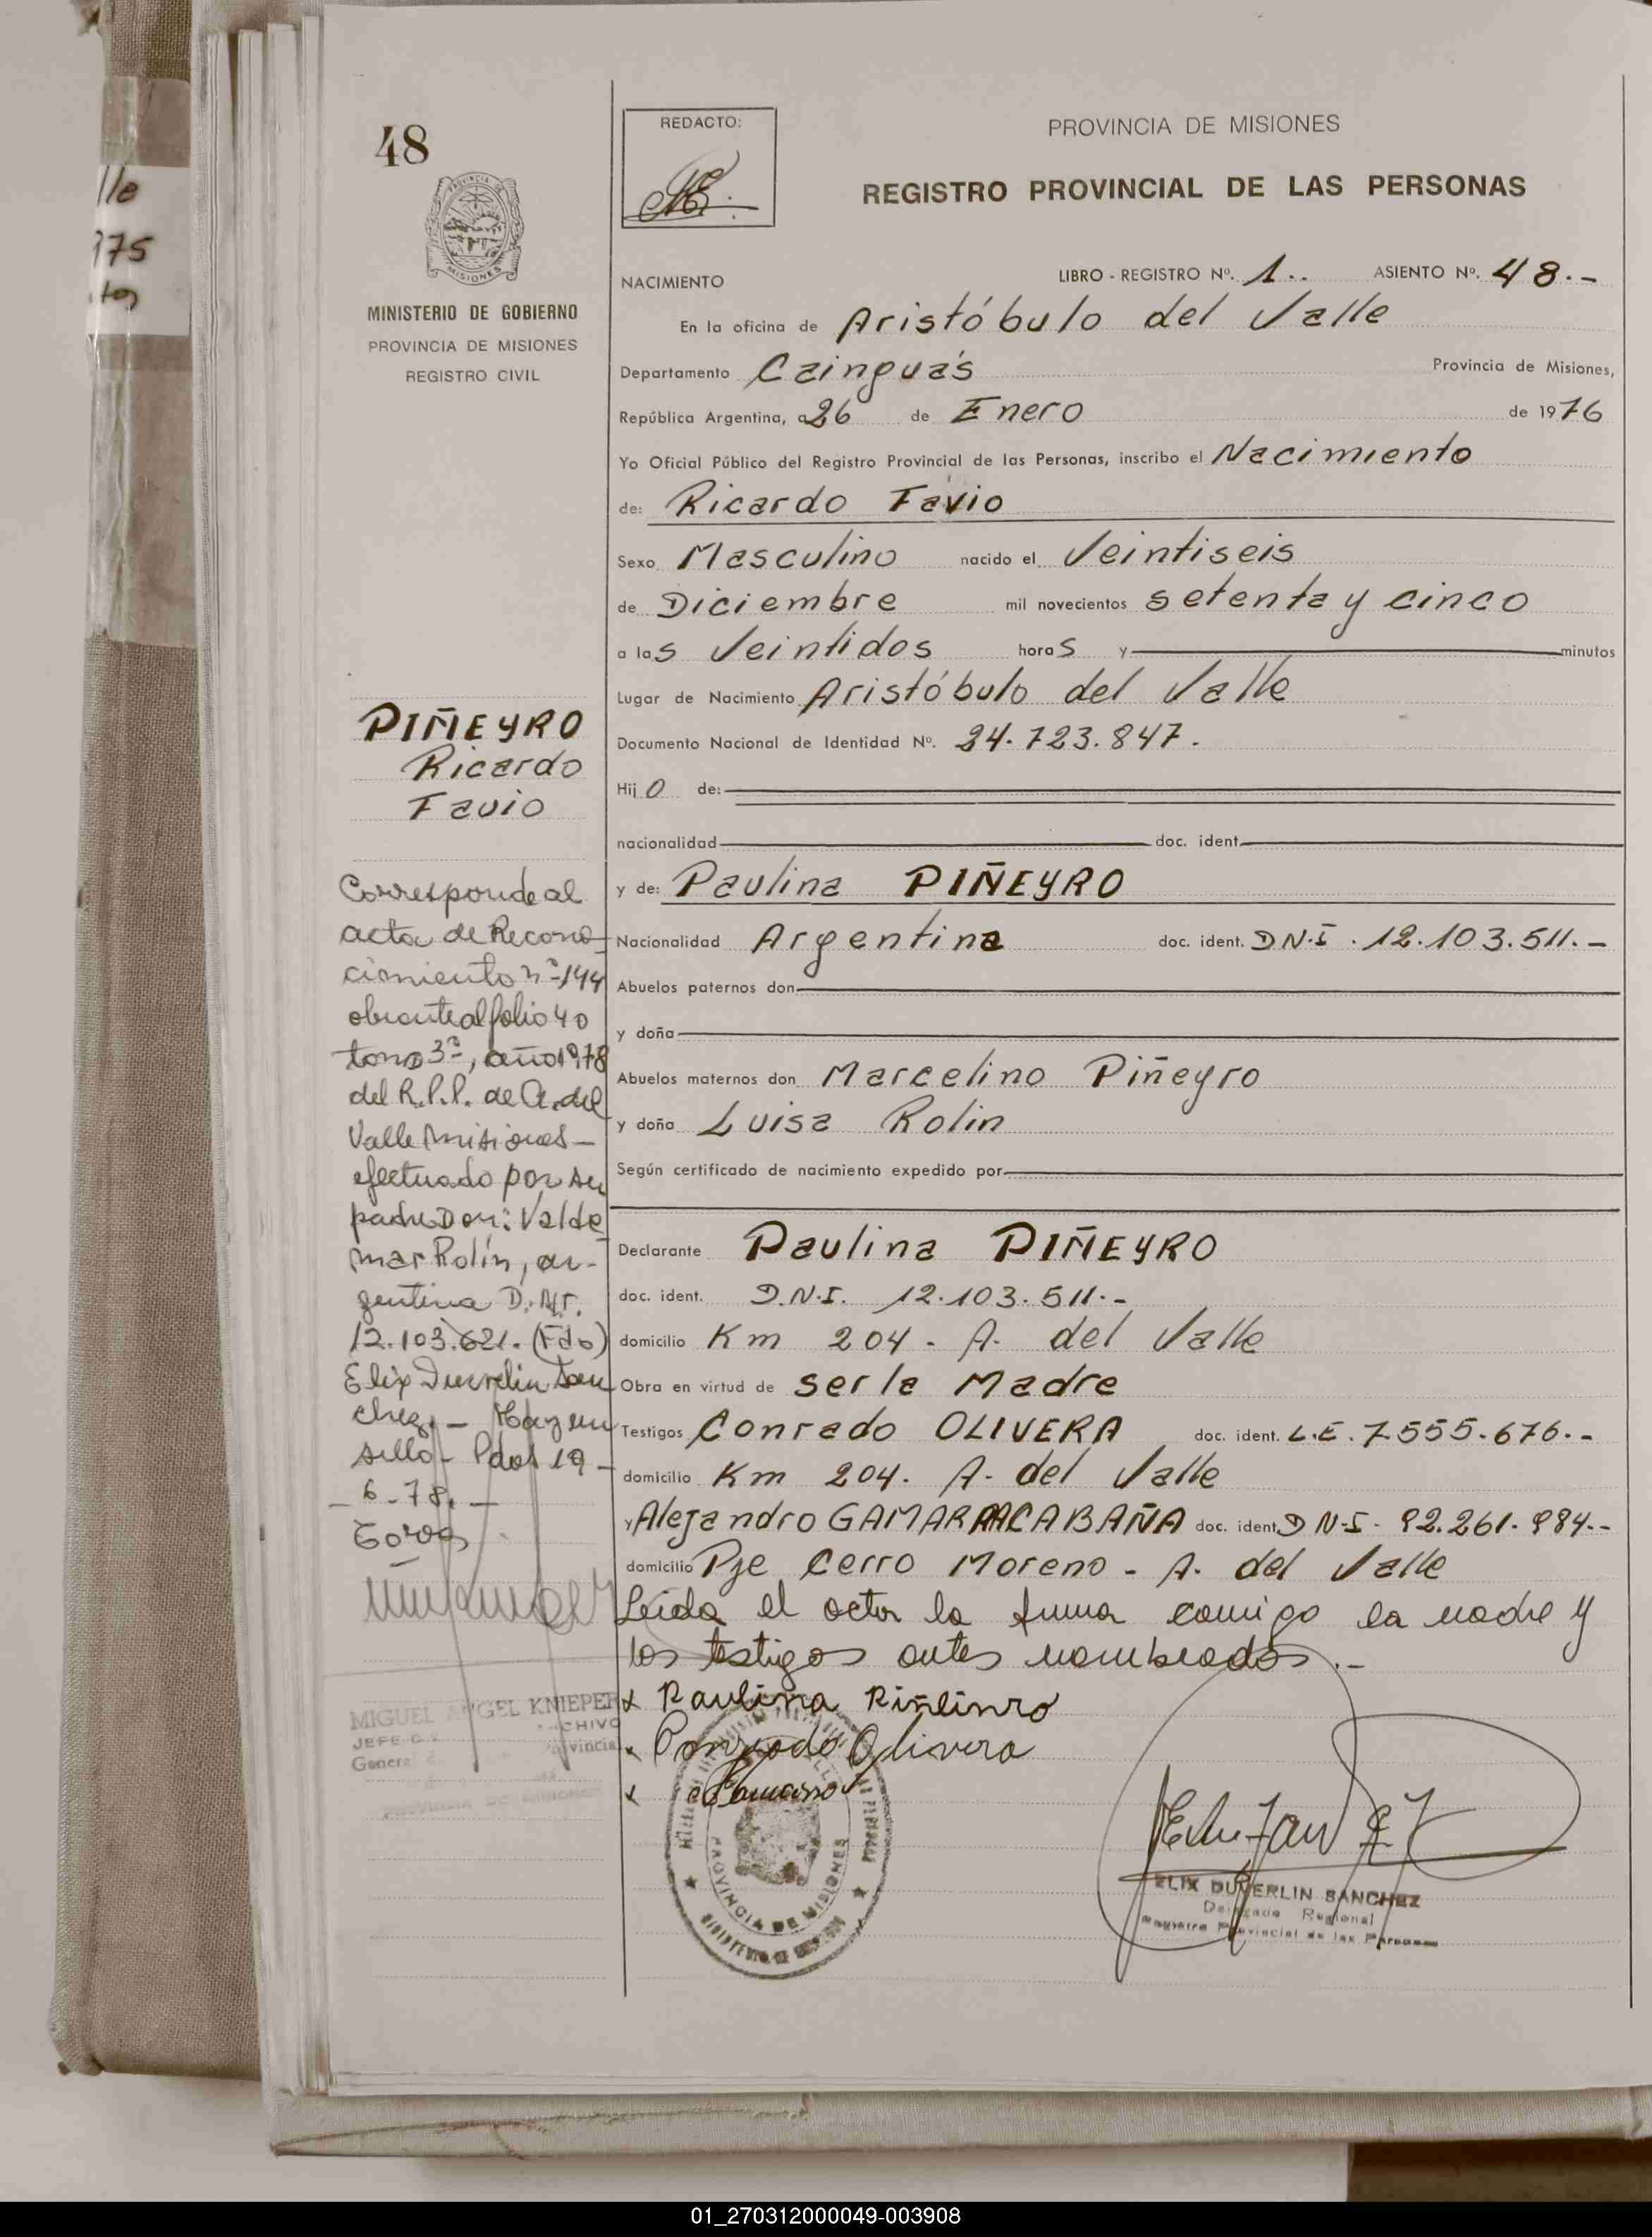 lle
975
48
MINISTERIO DE GOBIERNO
PROVINCIA DE MISIONES
REGISTRO CIVIL
REDACTO:
PROVINCIA DE MISIONES
REGISTRO PROVINCIAL DE LAS PERSONAS
NACIMIENTO
LIBRO - REGISTRO Nº. 1.. ASIENTO Nº. 48.-
En la oficina de Aristóbulo del Valle
Departamento Cainguás Provincia de Misiones,
República Argentina, a 26 de Enero de 1976
Yo Oficial Público del Registro Provincial de las Personas, inscribo el Nacimiento
de: Ricardo Favio
Sexo Masculino nacido el Veintiseis
de Diciembre mil novecientos setenta y cinco
a las Veintidos horas y minutos
Lugar de Nacimiento Aristóbulo del Valle
Documento Nacional de Identidad Nº. 24.723.847.
Hijo de:
nacionalidad doc. ident.
y de: Paulina PIÑEYRO
Nacionalidad Argentina doc. ident. D.N.I. 12.103.511.-
Abuelos paternos don
y doña
Abuelos maternos don Marcelino Piñeyro
y doña Luisa Rolin
Según certificado de nacimiento expedido por
Declarante Paulina PIÑEYRO
doc. ident. D.N.I. 12.103.511.-
domicilio Km 204 - A. del Valle
Obra en virtud de ser la Madre
Testigos Conrado OLIVERA doc. ident. L.E. 7.555.676.-
domicilio Km 204. A. del Valle
y Alejandro GAMARRA CABAÑA doc. ident. D.N.I. 92.261.984.-
domicilio Pje Cerro Moreno - A. del Valle
Leida el acta la firma comigo la madre y
los testigos antes nombrados.-
x Paulina Piñeinro
x Conrado Olivera
x Gamarra
PROVINCIA DE MISIONES
MINISTERIO DE GOBIERNO
ELIX DUVERLIN SANCHEZ
Delegado Regional
Registro Provincial de las Personas
PIÑEYRO
Ricardo
Favio
Corresponde al
acta de Recono-
cimiento nº 144
obrante al folio 40
tomo 3º, año 1978
del R.P.P. de A. del
Valle Misiones -
efectuado por su
padre Don: Valde
mar Rolín, ar-
gentina D.N.I.
12.103.621. (Fdo)
Elix Duverlin San
chez. - Hay un
sello - Pdas 19 -
- 6 - 78. -
MIGUEL ANGEL KNIEPER
JEFE ARCHIVO
General Provincia
PROVINCIA DE MISIONES
01_270312000049-003908